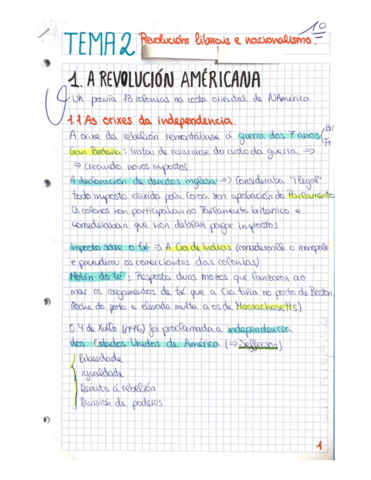 10
TEMA 2 Revolucións liberais e nacionalismo.-
1. A REVOLUCIÓN AMÉRICANA
UK posuía 13 colonias na costa oriental de N América
1.1 As orixes da independencia.
A orixe da rebelión remontábase á guerra dos 7 anos Br/Fr
Gran Bretaña: tratou de resarcirse do custo da guerra ⇒
⇒ creando novos impostos.
A declaración de dereitos inglesa ⇒ Consideraba "ilegal"
todo imposto esixido pola Coroa sen aprobación do Parlamento
Os colonos non participaban no Parlamento británico e
consideraban que non debían pagar impostos
Imposto sobre o té ⇒ A Cia de Indias (concedéronlle o monopolio
e prexudica os comerciantes das colonias)
Motín do té: Resposta duns mozos que lanzaron ao
mar os cargamentos de té que a Cia tiña no porto de Boston.
Peche do porto e elevada multa a os de Massachusetts)
O 4 de Xullo (1776) foi proclamada a independencia
dos Estados Unidos de América (⇒ Jefferson)
liberdade
igualdade
Dereito á rebelión
División de poderes
1